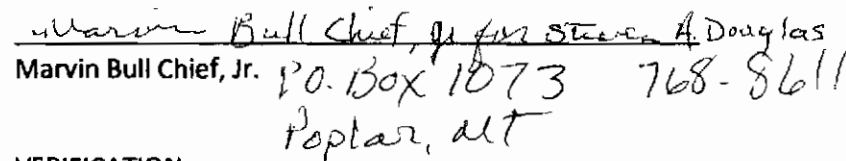 Marvin Bull Chief, Jr for Steven A. Douglas
Marvin Bull Chief, Jr. P.O. Box 1073 768-8611
Poplar, MT
VERIFICATION